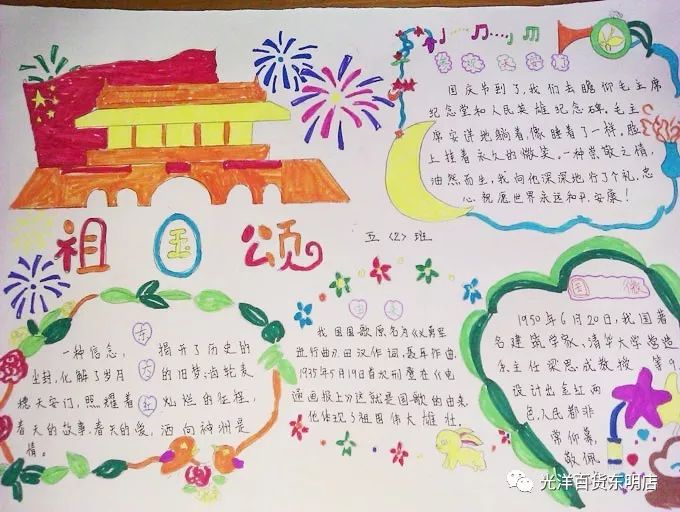 国庆节到了,我们去瞻仰毛主席
纪念堂和人民英雄纪念碑。毛主
席安详地躺着,像睡着了一样,脸
上挂着永久的微笑。一种崇敬之情,
油然而生,我向他深深地行了个礼,忠
心祝愿世界永远和平、安康!
祖国颂
五〈2〉班
一种信念,揭开了历史的
尘封,化解了岁月的旧梦,齿轮麦
穗天安门,照耀着灿烂的征程,
春天的故事,春天的爱,洒向神州是
情。
东方红
国歌
我国国歌原名为《义勇军
进行曲》,田汉作词,聂耳作曲,
1935年5月19日首次刊登在《电
通画报上》这就是国歌的由来,
他体现了祖国伟大雄壮。
国徽
1950年6月20日,我国著
名建筑学家、清华大学营造
系主任梁思成教授等
设计出金红两
色,人民都非
常仰慕,
敬佩
光洋百货东明店